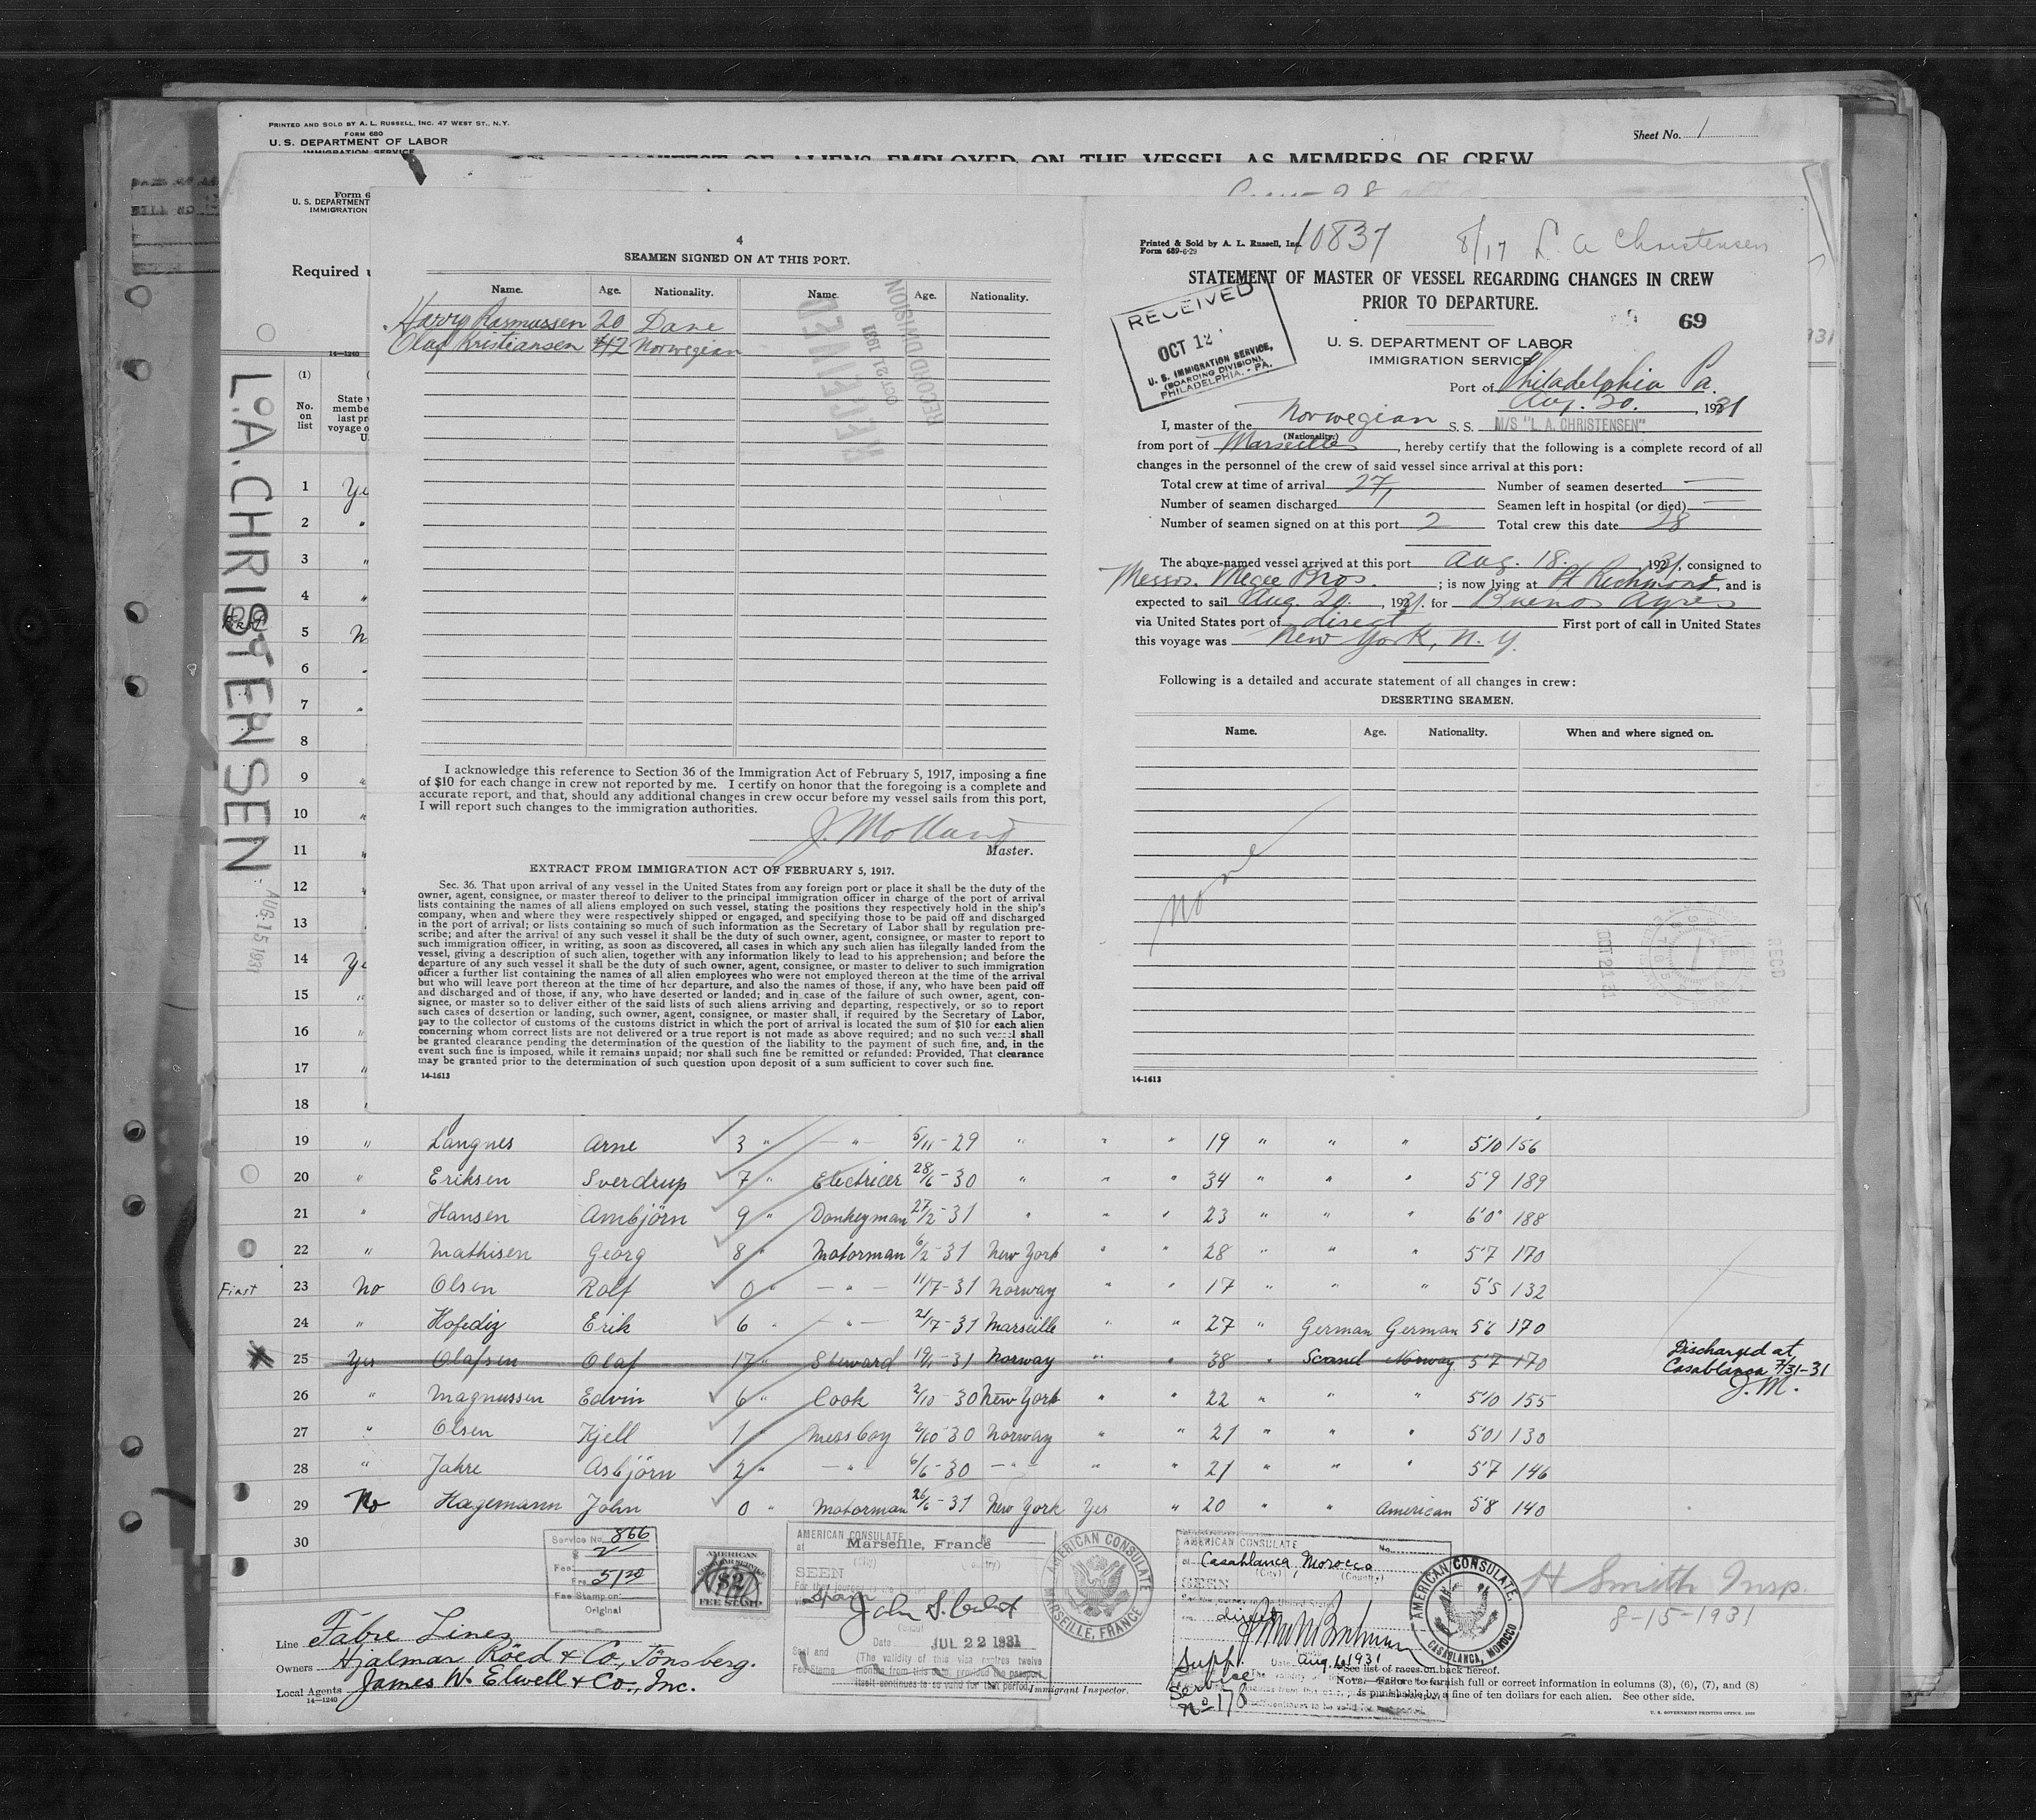 PRINTED AND SOLD BY A. L. RUSSELL, INC. 47 WEST ST., N.Y.
FORM 680
U. S. DEPARTMENT OF LABOR
IMMIGRATION SERVICE
Sheet No. 1
MANIFEST OF ALIENS EMPLOYED ON THE VESSEL AS MEMBERS OF CREW
Form 6
U. S. DEPARTMENT
IMMIGRATION
Required
14-1240
(1)
No. on list
L. A. CHRISTENSEN
AUG. 15 1931
4
SEAMEN SIGNED ON AT THIS PORT.
Name. Age. Nationality. Name. Age. Nationality.
Harry Rasmussen 20 Dane
Olaf Kristiansen 42 Norwegian
RECEIVED
OCT 21 1931
RECORD DIVISION
I acknowledge this reference to Section 36 of the Immigration Act of February 5, 1917, imposing a fine
of $10 for each change in crew not reported by me. I certify on honor that the foregoing is a complete and
accurate report, and that, should any additional changes in crew occur before my vessel sails from this port,
I will report such changes to the immigration authorities.
J. Molland
Master.
EXTRACT FROM IMMIGRATION ACT OF FEBRUARY 5, 1917.
Sec. 36. That upon arrival of any vessel in the United States from any foreign port or place it shall be the duty of the
owner, agent, consignee, or master thereof to deliver to the principal immigration officer in charge of the port of arrival
lists containing the names of all aliens employed on such vessel, stating the positions they respectively hold in the ship's
company, when and where they were respectively shipped or engaged, and specifying those to be paid off and discharged
in the port of arrival; or lists containing so much of such information as the Secretary of Labor shall by regulation pre-
scribe; and after the arrival of any such vessel it shall be the duty of such owner, agent, consignee, or master to report to
such immigration officer, in writing, as soon as discovered, all cases in which any such alien has illegally landed from the
vessel, giving a description of such alien, together with any information likely to lead to his apprehension; and before the
departure of any such vessel it shall be the duty of such owner, agent, consignee, or master to deliver to such immigration
officer a further list containing the names of all alien employees who were not employed thereon at the time of the arrival
but who will leave port thereon at the time of her departure, and also the names of those, if any, who have been paid off
and discharged and of those, if any, who have deserted or landed; and in case of the failure of such owner, agent, con-
signee, or master so to deliver either of the said lists of such aliens arriving and departing, respectively, or so to report
such cases of desertion or landing, such owner, agent, consignee, or master shall, if required by the Secretary of Labor,
pay to the collector of customs of the customs district in which the port of arrival is located the sum of $10 for each alien
concerning whom correct lists are not delivered or a true report is not made as above required; and no such vessel shall
be granted clearance pending the determination of the question of the liability to the payment of such fine, and, in the
event such fine is imposed, while it remains unpaid; nor shall such fine be remitted or refunded: Provided, That clearance
may be granted prior to the determination of such question upon deposit of a sum sufficient to cover such fine.
14-1613
Printed & Sold by A. L. Russell, Inc.
Form 689-6-29
10837 8/17 L. A Christensen
STATEMENT OF MASTER OF VESSEL REGARDING CHANGES IN CREW
PRIOR TO DEPARTURE.
69
RECEIVED
OCT 12
U. S. IMMIGRATION SERVICE,
(BOARDING DIVISION),
PHILADELPHIA, - PA.
U. S. DEPARTMENT OF LABOR
IMMIGRATION SERVICE
Port of Philadelphia Pa.
Aug. 20. , 1931
I, master of the Norwegian S. S. M/S "L. A. CHRISTENSEN"
(Nationality)
from port of Marseille , hereby certify that the following is a complete record of all
changes in the personnel of the crew of said vessel since arrival at this port:
Total crew at time of arrival 27, Number of seamen deserted —
Number of seamen discharged Seamen left in hospital (or died) —
Number of seamen signed on at this port 2 Total crew this date 28
The above-named vessel arrived at this port Aug. 18. , 1931, consigned to
Messrs. Megee Bros. ; is now lying at Pt Richmond, and is
expected to sail Aug. 20. , 1931. for Buenos Ayres
via United States port of direct First port of call in United States
this voyage was New York, N. Y.
Following is a detailed and accurate statement of all changes in crew:
DESERTING SEAMEN.
Name. Age. Nationality. When and where signed on.
None
OCT 21 31
RECD
14-1613
1 Ye
2 "
3 "
4 "
5 N
6
7 "
8
9 "
10 "
11 "
12 "
13
14 Ye
15 "
16 "
17 "
18
19 " Langnes Arne 3 " — " — 5/11-29 " " " 19 " " " 5'10 156
20 " Eriksen Sverdrup 7 " Electricer 28/6-30 " " " 34 " " " 5'9 189
21 " Hansen Arnbjörn 9 " Donkeyman 27/2-31 " " " 23 " " " 6'0" 188
22 " Mathisen Georg 8 " Motorman 6/2-31 New York " " 28 " " " 5'7 170
First 23 No Olsen Rolf 0 " — " — 11/7-31 Norway " " 17 " " " 5'5 132
24 " Hofediz Erik 6 " — " — 21/7-31 Marseille " " 27 " German German 5'6 170
25 Yes Olafsen Olaf 17 " Steward 19/1-31 Norway " " 38 " Scand Norway 5'7 170 Discharged at Casablanca 7/31-31 J. M.
26 " Magnussen Edvin 6 " Cook 2/10-30 New York " " 22 " " " 5'10 155
27 " Olsen Kjell 1 " Messboy 2/10-30 Norway " " 21 " " " 5'01 130
28 " Jahre Asbjörn 2 " — " — 6/6-30 — " — " " 21 " " " 5'7 146
29 No Hagemann John 0 " Motorman 26/6-31 New York Yes " 20 " " American 5'8 140
30
Service No. 866
Fee
Frs 51.20
Fee Stamp on:
Original
AMERICAN
$2
FEE STAMP
AMERICAN CONSULATE
at Marseille, France No
(City) (Country)
SEEN
Date JUL 22 1931
(The validity of this visa expires twelve
months from this date, provided the passport
itself continues to be valid for that period.)
Seal and
Fee Stamp
AMERICAN CONSULATE
MARSEILLE, FRANCE
AMERICAN CONSULATE No.
at Casablanca, Morocco
(City) (Country)
SEEN
direct
Date Aug. 1931
Supp.
Service
No 178
AMERICAN CONSULATE,
CASABLANCA, MOROCCO
H Smith Insp.
8-15-1931
Line Fabre Lines
Owners Hjalmar Röed & Co., Tönsberg.
Local Agents James W. Elwell & Co., Inc.
14-1240
Immigrant Inspector.
See list of races on back hereof.
NOTE.—Failure to furnish full or correct information in columns (3), (6), (7), and (8)
is punishable by a fine of ten dollars for each alien. See other side.
U. S. GOVERNMENT PRINTING OFFICE